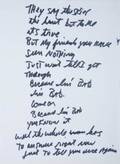 They say the
the hunt but to me
it's true
But my friends you have
seen nothing
Just wait till I get
through
Because I'm Bob
I'm Bob
come on
Because I'm Bob
you know it
well the whole world has
to answer right now
just to tell you once again